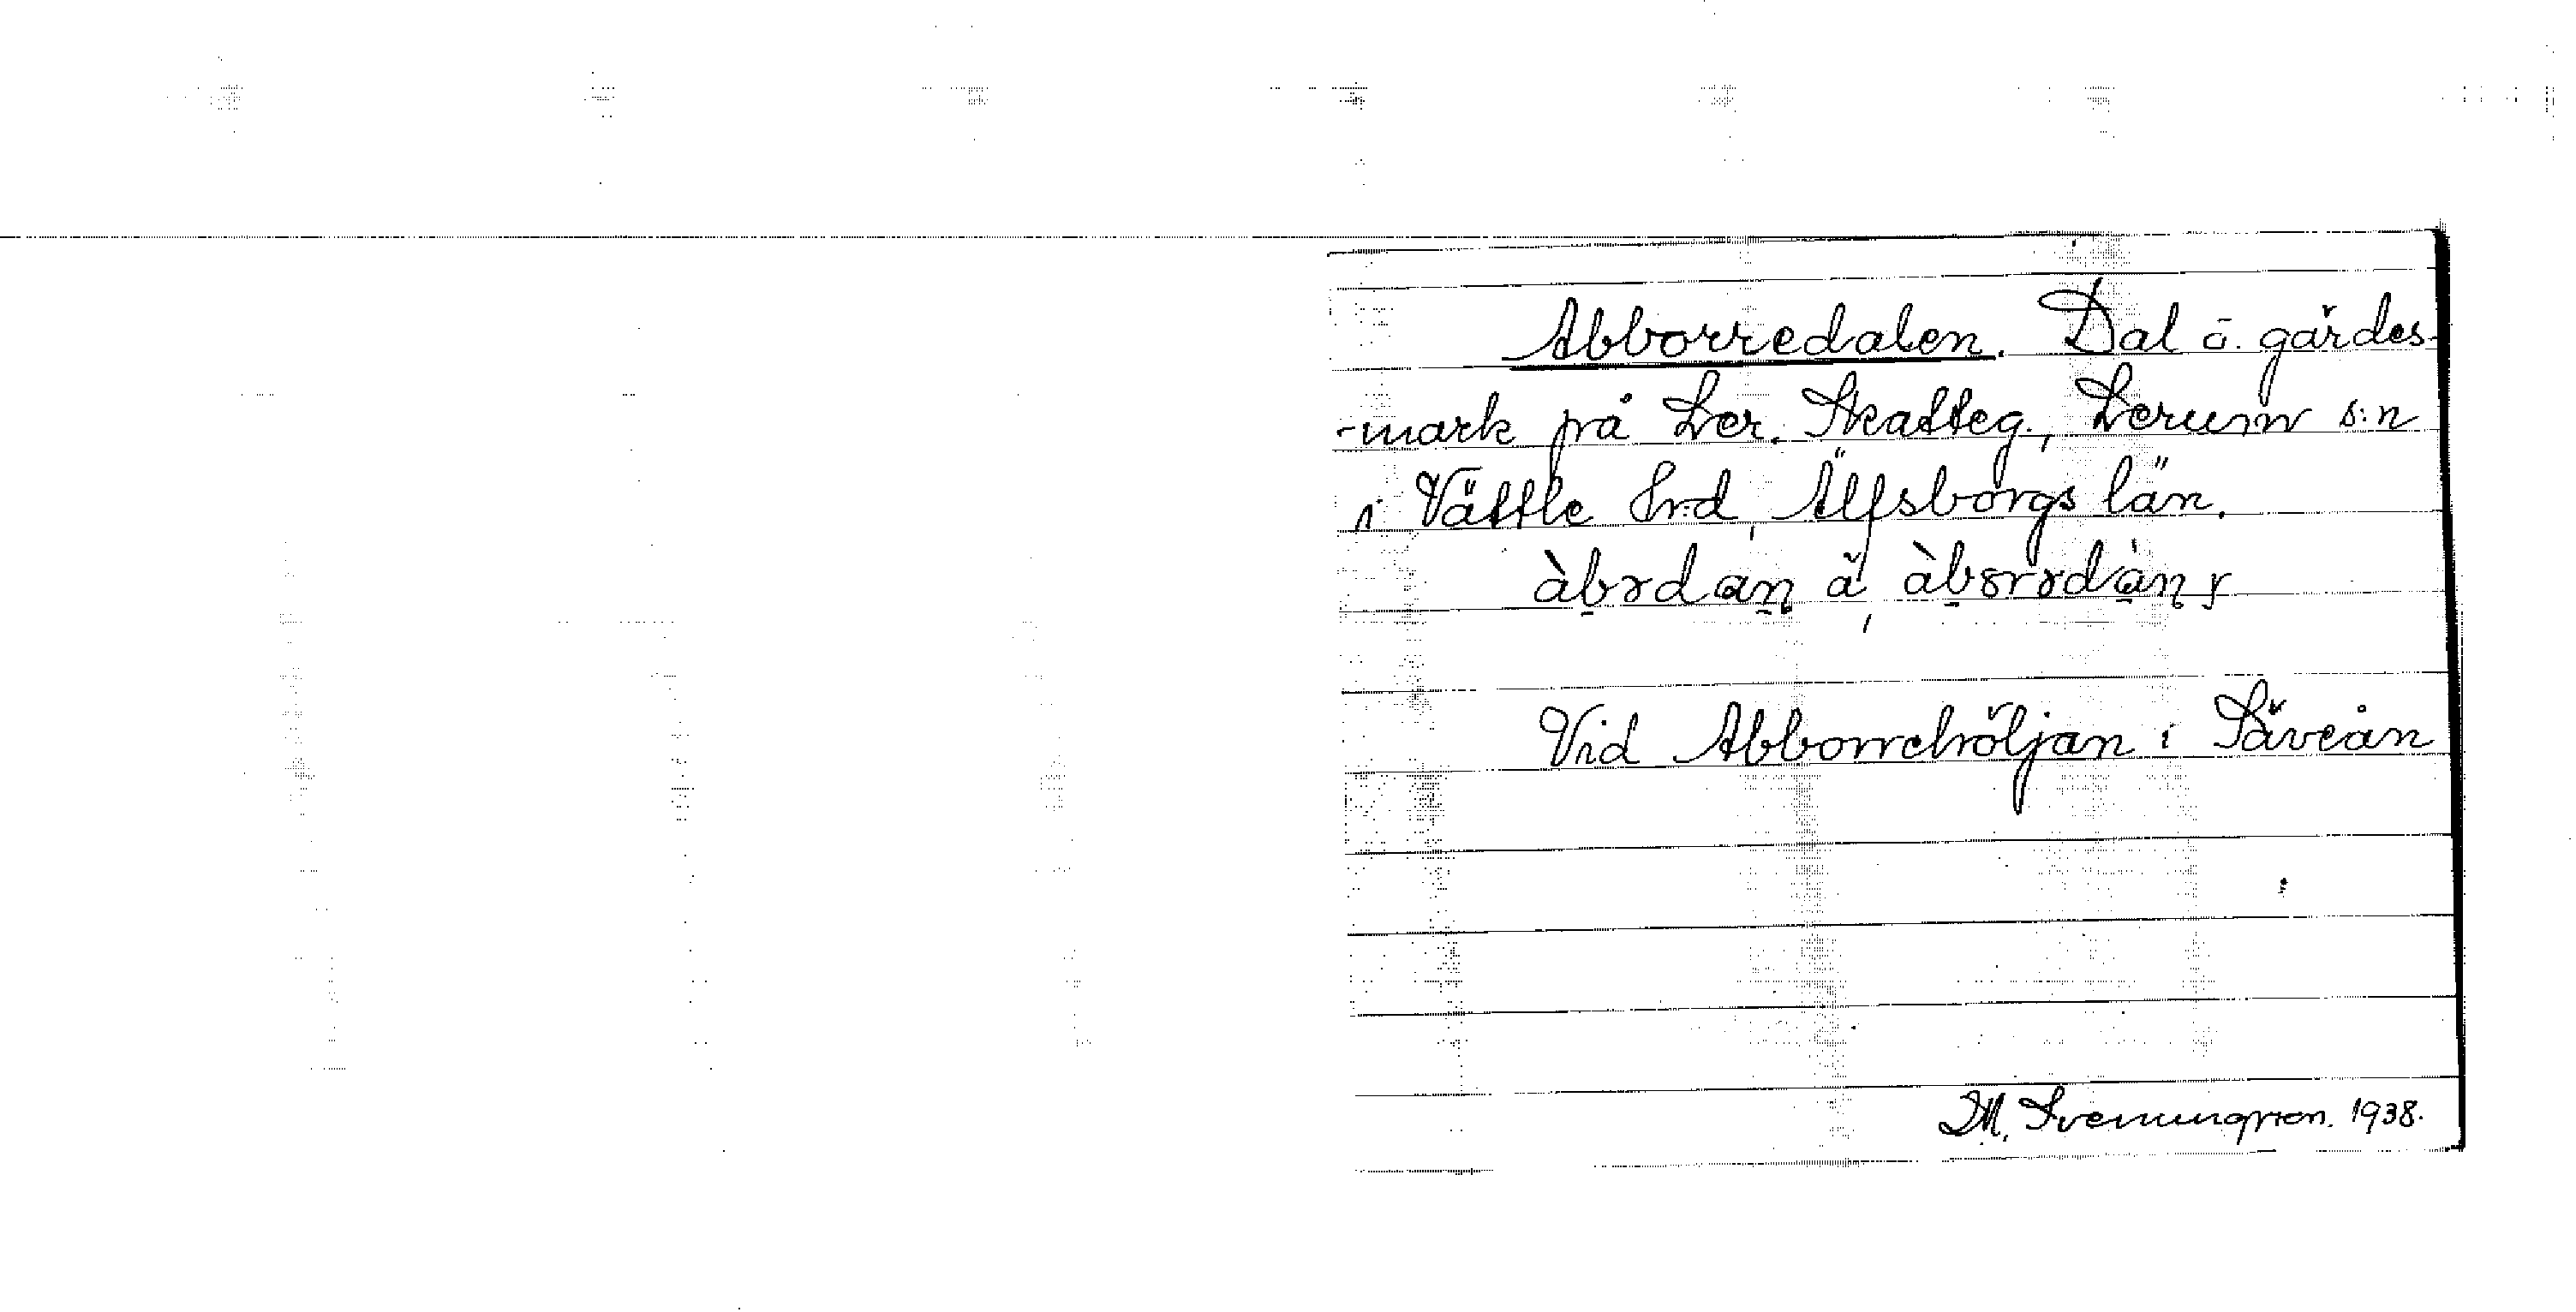 Abborredalen. Dal o. gärdes-
-mark på Ler. Skatteg., Lerum s:n
i Vättle hrd, Älfsborgs län.
Vid Abborrehöljan i Säveån
M. Svenungsson. 1938.